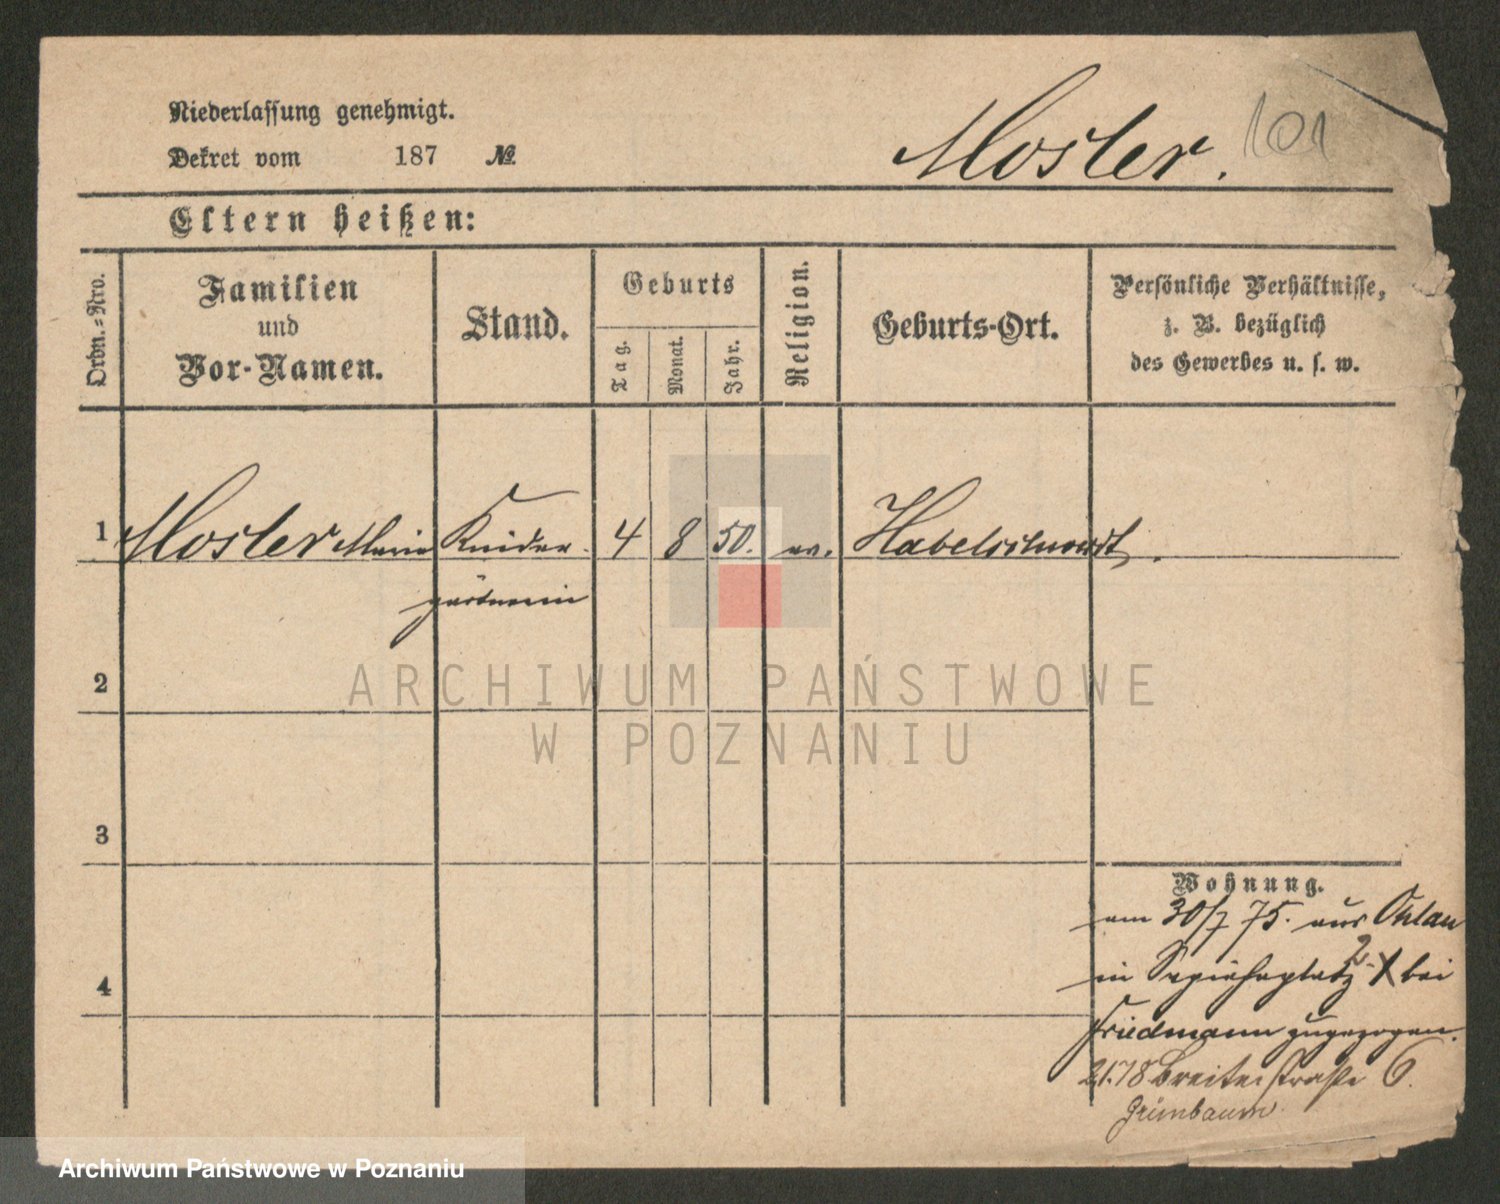 Niederlassung genehmigt.
Dekret vom 187 №
Mosler. 101
Eltern heißen:
Ordn.=Nro.
Familien
und
Vor-Namen.
Stand.
Geburts
Tag.
Monat.
Jahr.
Religion.
Geburts-Ort.
Persönliche Verhältnisse,
z. B. bezüglich
des Gewerbes u. s. w.
1 Mosler Marie Kinder 4 8 50. ev. Habelschwerdt.
gärtnerin
2
3
4
Wohnung.
am 30/7 75. aus Ohlau
in Sapiehaplatz 2 bei
Friedmann zugezogen.
2.1.78 Breitestraße 6.
Grünbaum
ARCHIWUM PAŃSTWOWE
W POZNANIU
Archiwum Państwowe w Poznaniu